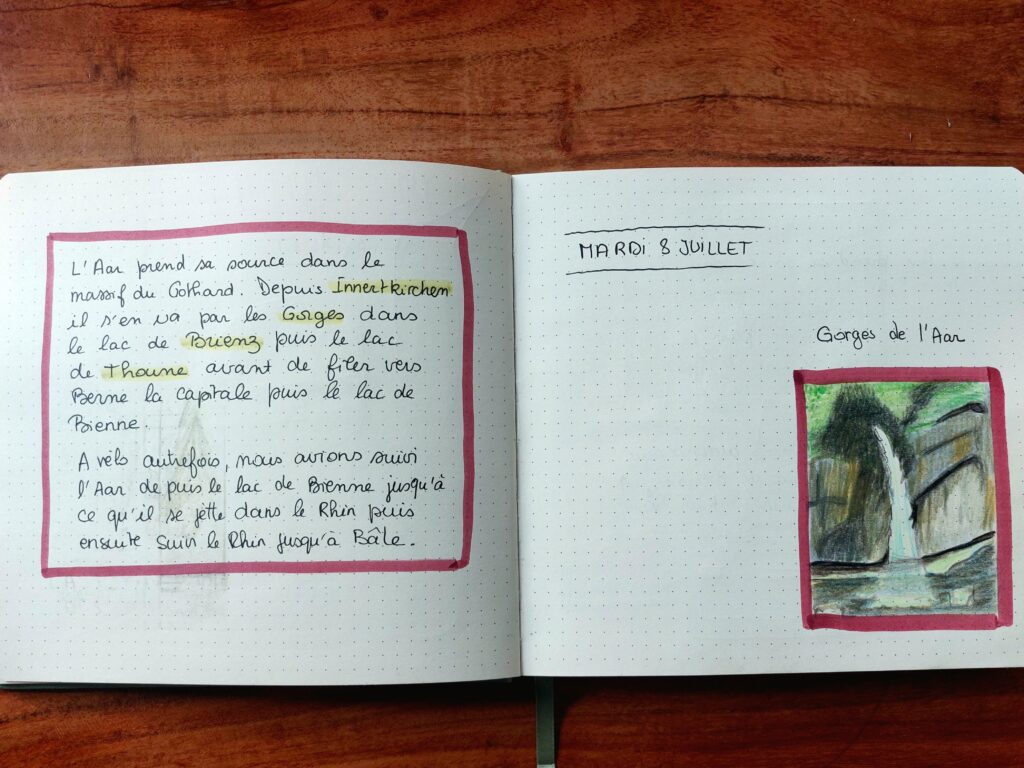 L'Aar prend sa source dans le
massif du Gothard. Depuis Innertkirchen
il s'en va par les Gorges dans
le lac de Brienz puis le lac
de Thoune avant de filer vers
Berne la capitale puis le lac de
Bienne.
A vélo autrefois, nous avions suivi
l'Aar depuis le lac de Bienne jusqu'à
ce qu'il se jette dans le Rhin puis
ensuite suivi le Rhin jusqu'à Bâle.
MARDI 8 JUILLET
Gorges de l'Aar